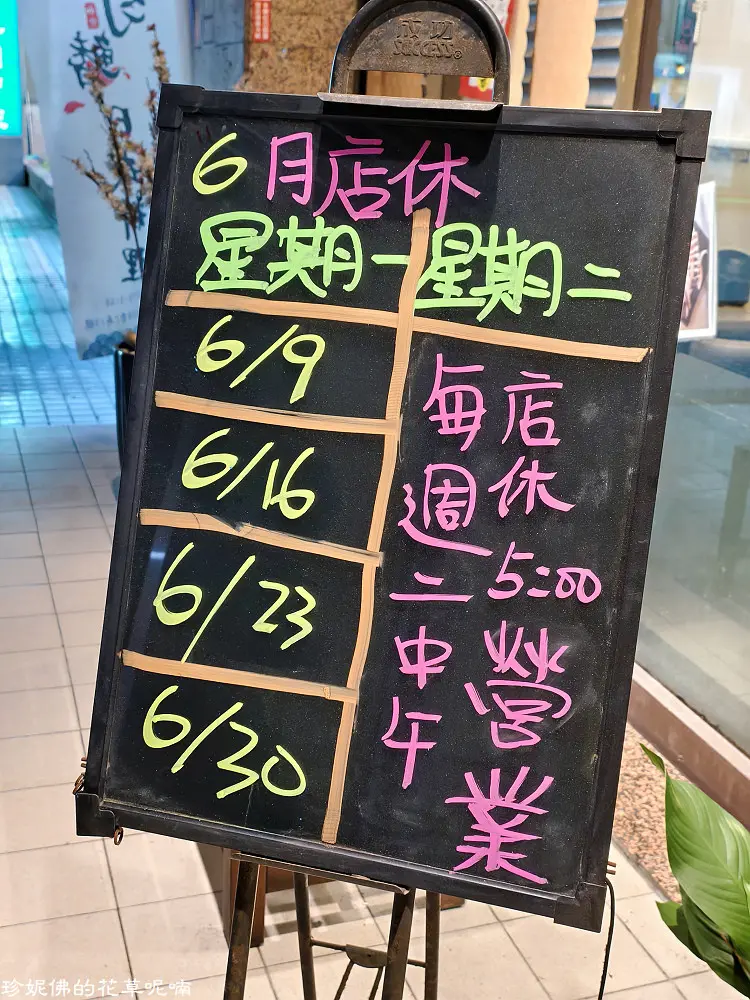 成功
SUCCESS®
6月店休
星期一
星期二
6/9
6/16
6/23
6/30
每週二中午
店休5:00營業
珍妮佛的花草呢喃